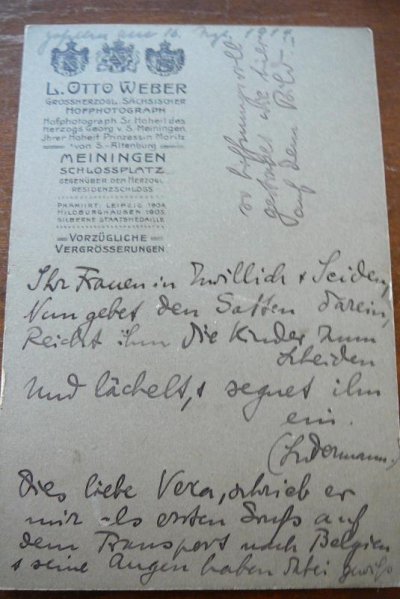 Gefallen am 16. 1914
L. OTTO WEBER
GROSSHERZOGL. SÄCHSISCHER
HOFPHOTOGRAPH
Hofphotograph Sr. Hoheit des
Herzogs Georg v. S. Meiningen
Ihrer Hoheit Prinzessin Moritz
von S.-Altenburg
MEININGEN
SCHLOSSPLATZ
GEGENÜBER DEM HERZOGL.
RESIDENZSCHLOSS
PRÄMIIRT: LEIPZIG 1904
HILDBURGHAUSEN 1905
SILBERNE STAATSMEDAILLE
VORZÜGLICHE
VERGRÖSSERUNGEN
so hoffnungsvoll
wie hier
auf dem Bild
Ihr Frauen in Zwillich & Seiden,
Nun gebet den Gatten darein,
Reicht ihm die Kinder zum
Scheiden
Und lächelt, & segnet ihn
ein.
(Sudermann.)
Dies liebe Vera, schrieb er
mir als ersten Gruß auf
dem Transport nach Belgien
& seine Augen haben dabei gewiß